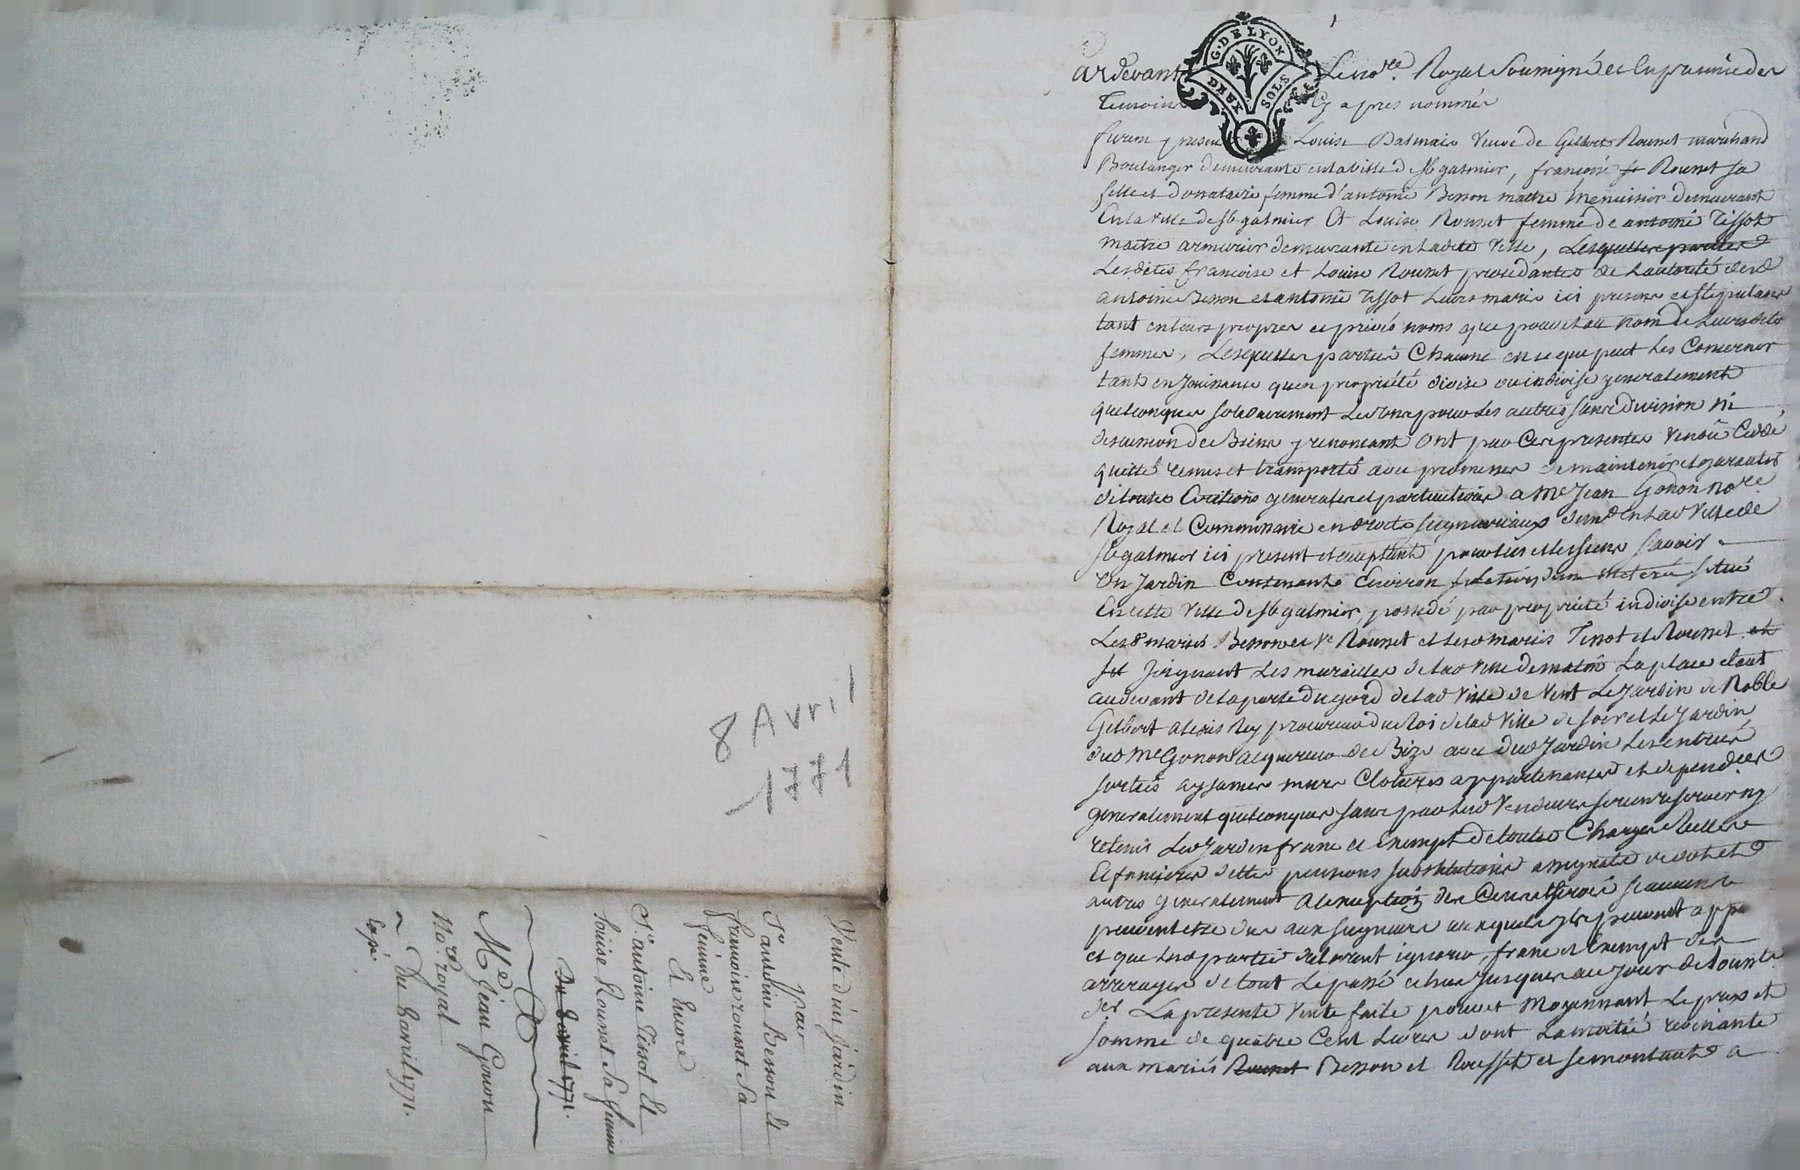 8 Avril
1771
Vente d'un jardin
par
Sr antoine Besson Et
francoise rounet Sa
femme
Et Encore
Sr antoine Tissot Et
Louise Rounet Sa femme
Du 8 avril 1771.
Me Jean Gonon
Nore royal
Du 8 avril 1771.
Expé.
G. DE LYON
DEUX SOLS
Pardevant Le nore Royal Soussigné et En presence des
Temoins Cy apres nommés
furent presens Louise Dalmais veuve de Gilbert Rounet marchand
Boulanger demeurante en la ville de st galmier, francoise Rounet sa
fille et donataire femme d'antoine Besson maitre menuisier demeurant
En la ville de st galmier Et Louise Rounet femme de antoine Tissot
maitre armurier demeurante en ladite ville, Lesquelles parties
Lesdites francoise et Louise Rounet procedantes de l'autorité desd
antoine Besson et antoine Tissot Leurs maris ici presens et stipulans
tant en leurs propres et privés noms que pour et au nom de Leursdites
femmes, Lesquelles parties Chacune en ce que peut les Concerner
tant en jouissance qu'en propriété divise ou indivise generalement
quelconques solidairement Les uns pour les autres sans division ni
discussion de Biens y renoncant ont par Ces presentes vendu Cedé
quitté remis et transporté avec promesse de maintenir et garantir
de toutes Evictions generales et particulieres a Me Jean Gonon nore
Royal et Commissaire en droits seigneuriaux demt En lad ville de
st galmier ici present et acceptant pour lui et les siens savoir
Un Jardin Contenant Environ meterée situé
En cette ville de st galmier, possedé par propriété indivise entre
Les d mariés Besson et ve Rounet et lesd mariés Tissot et Rounet et
Joignant Les murailles de lad ville de matin La place etant
au devant de la porte du gord de lad ville de vent Le Jardin de Noble
Gilbert alexis Rey procureur du Roi de lad ville de soir et Le Jardin
dud Me Gonon acquereur de Bize avec dud Jardin Les entrées
sorties aysances murs Clotures appartenances et dependces
generalement quelconques sans par lesd vendeurs s'en reserver ny
retenir Led Jardin franc et Exempt de toutes Charges Reelles
Et foncieres dettes pensions substitutions et
autres generalement a l'exception des Cens et servis
peuvent etre dus aux seigneurs auxquels ils peuvent appa
et que lesd parties declarent ignorer, franc et Exempt des
arrerages de tout Le passé echus jusques au jour
La presente vente faite pour et moyennant Le prix et
somme de quatre Cent Livres dont La moitié revenante
aux mariés Rounet Besson et Rousset et se montant a